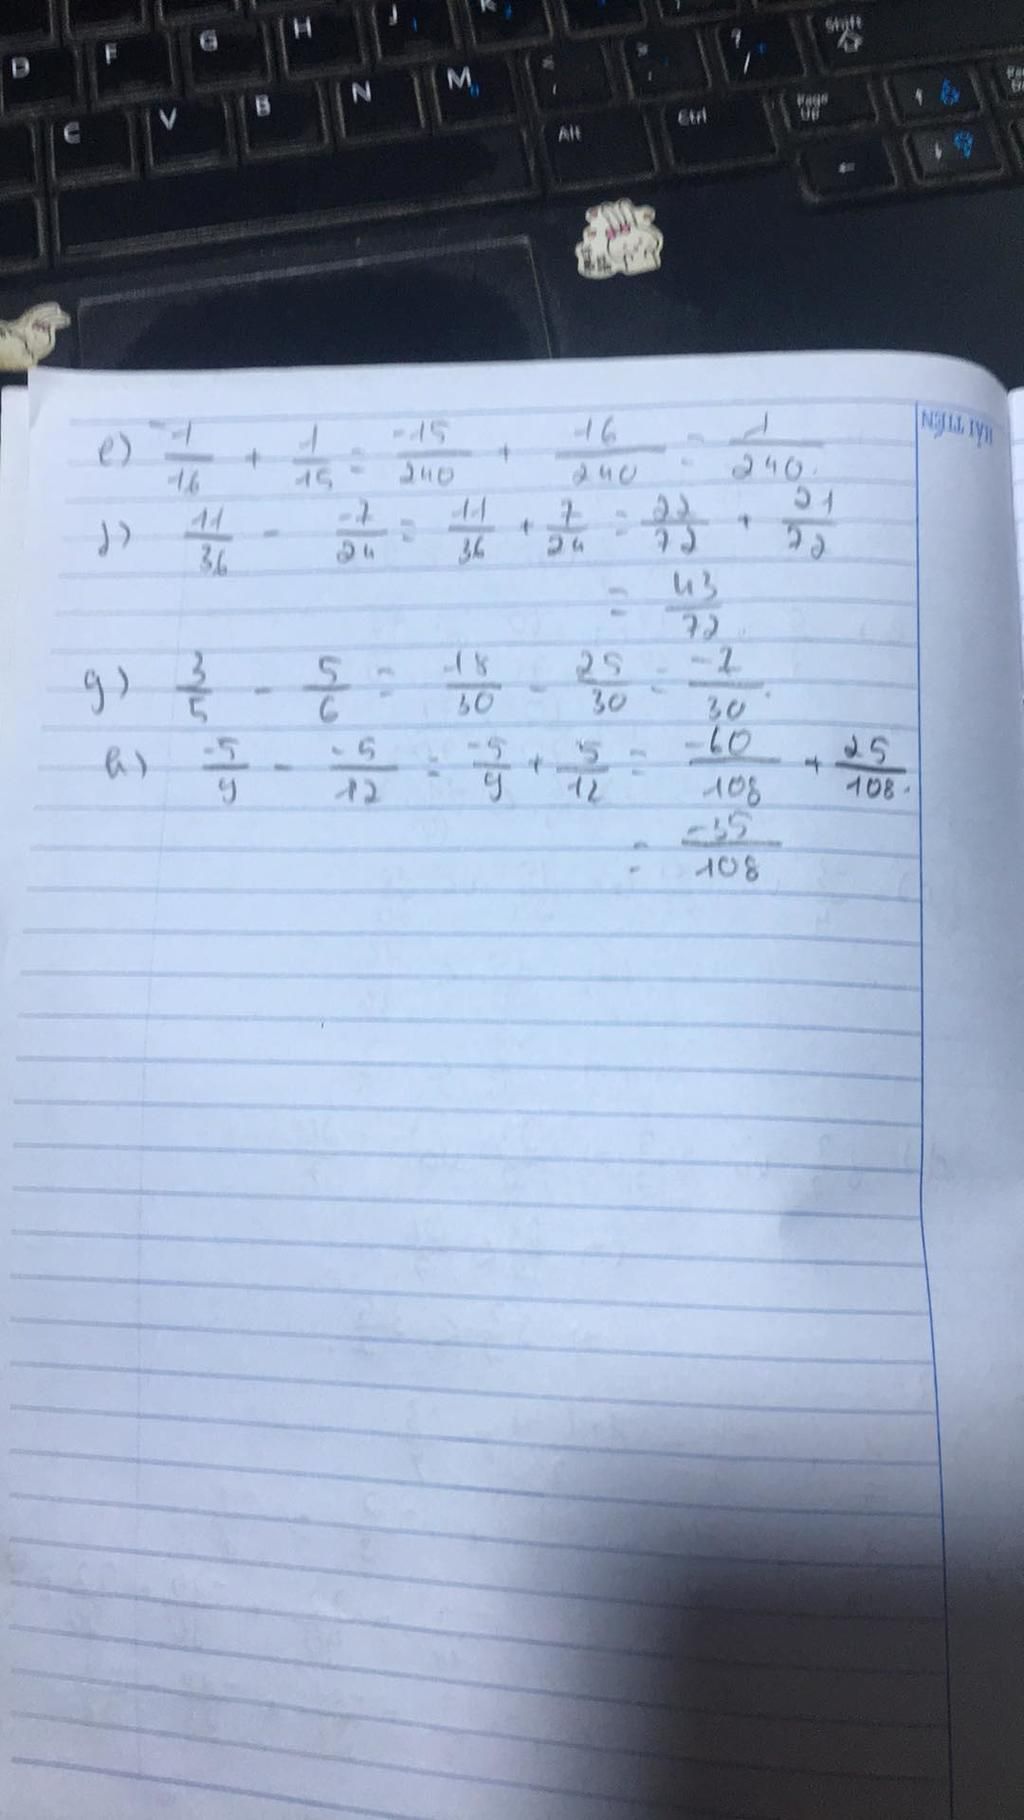 D F G H J K
C V B N M Alt Ctrl Page Up Shift
HẢI TIẾN
e) -1/16 + 1/15 = -15/240 + 16/240 = 1/240.
f) 11/36 - -7/24 = 11/36 + 7/24 = 22/72 + 21/72
= 43/72
g) 3/5 - 5/6 = 18/30 - 25/30 = -7/30.
h) -5/9 - -5/12 = -5/9 + 5/12 = -60/108 + 25/108.
= -35/108